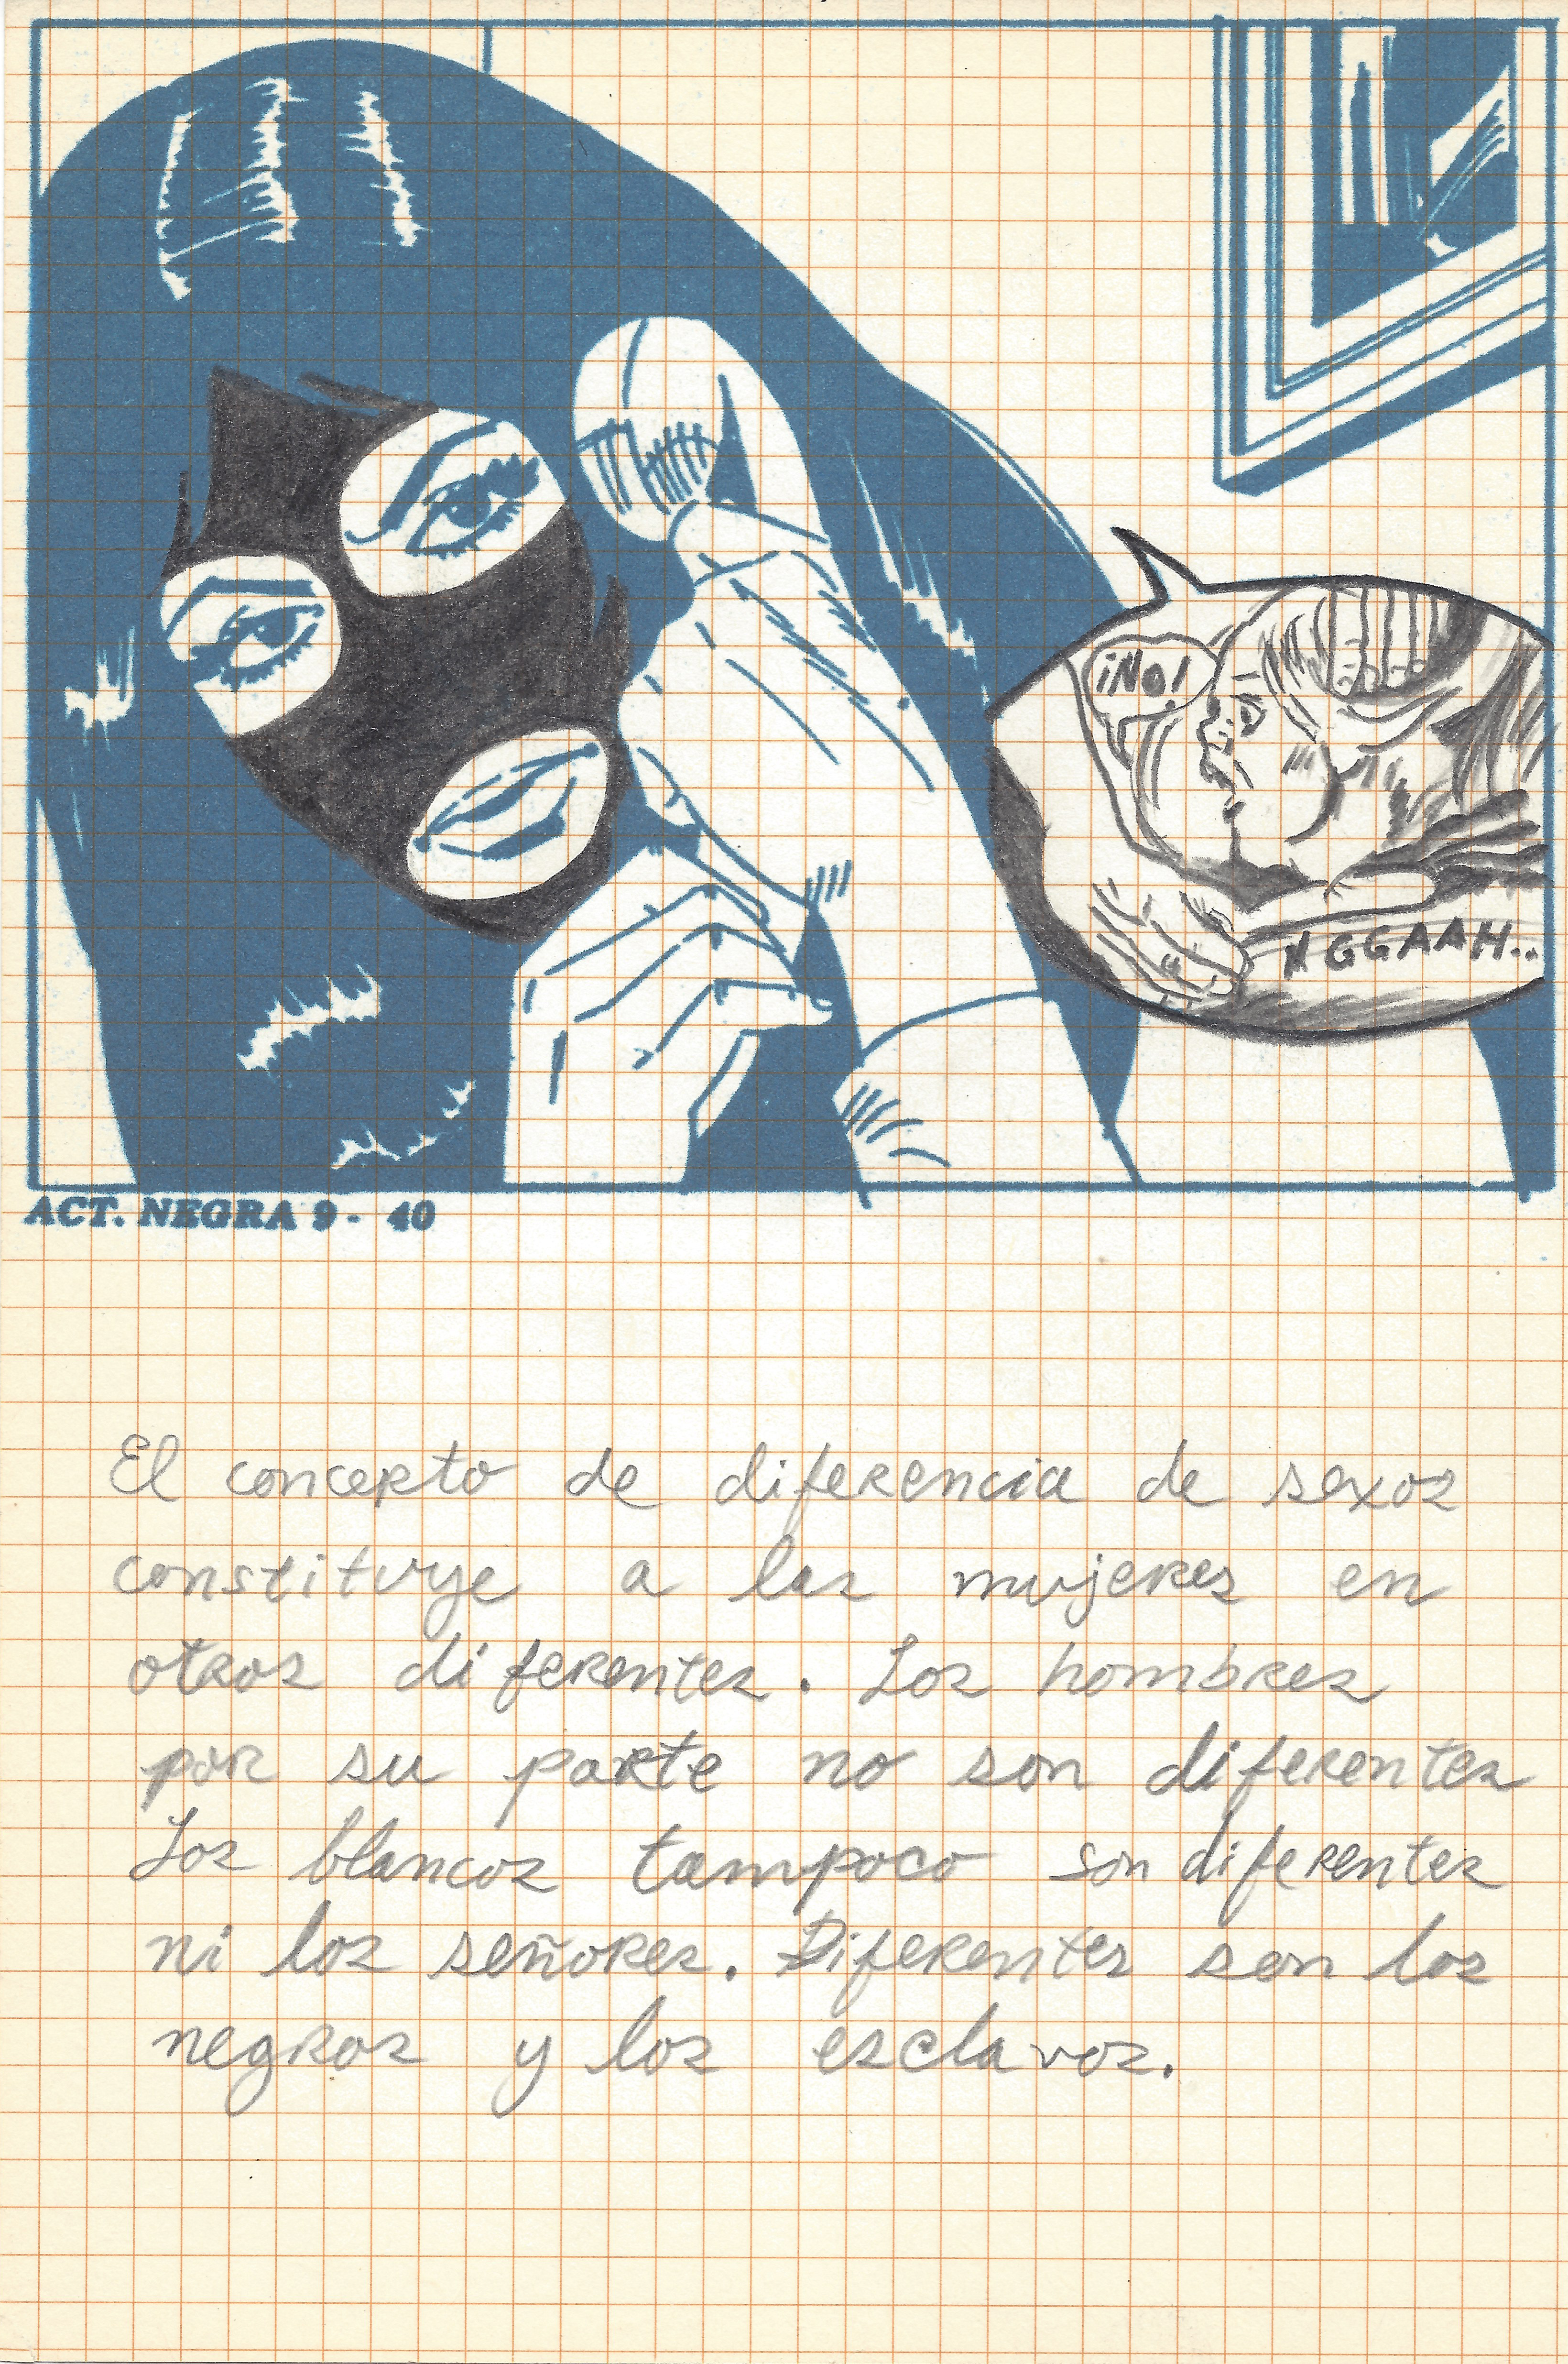 ¡NO!
NGGAAH..
ACT. NEGRA 9 - 40
El concepto de diferencia de sexos
constituye a las mujeres en
otros diferentes. Los hombres
por su parte no son diferentes
Los blancos tampoco son diferentes
ni los señores. Diferentes son los
negros y los esclavos.